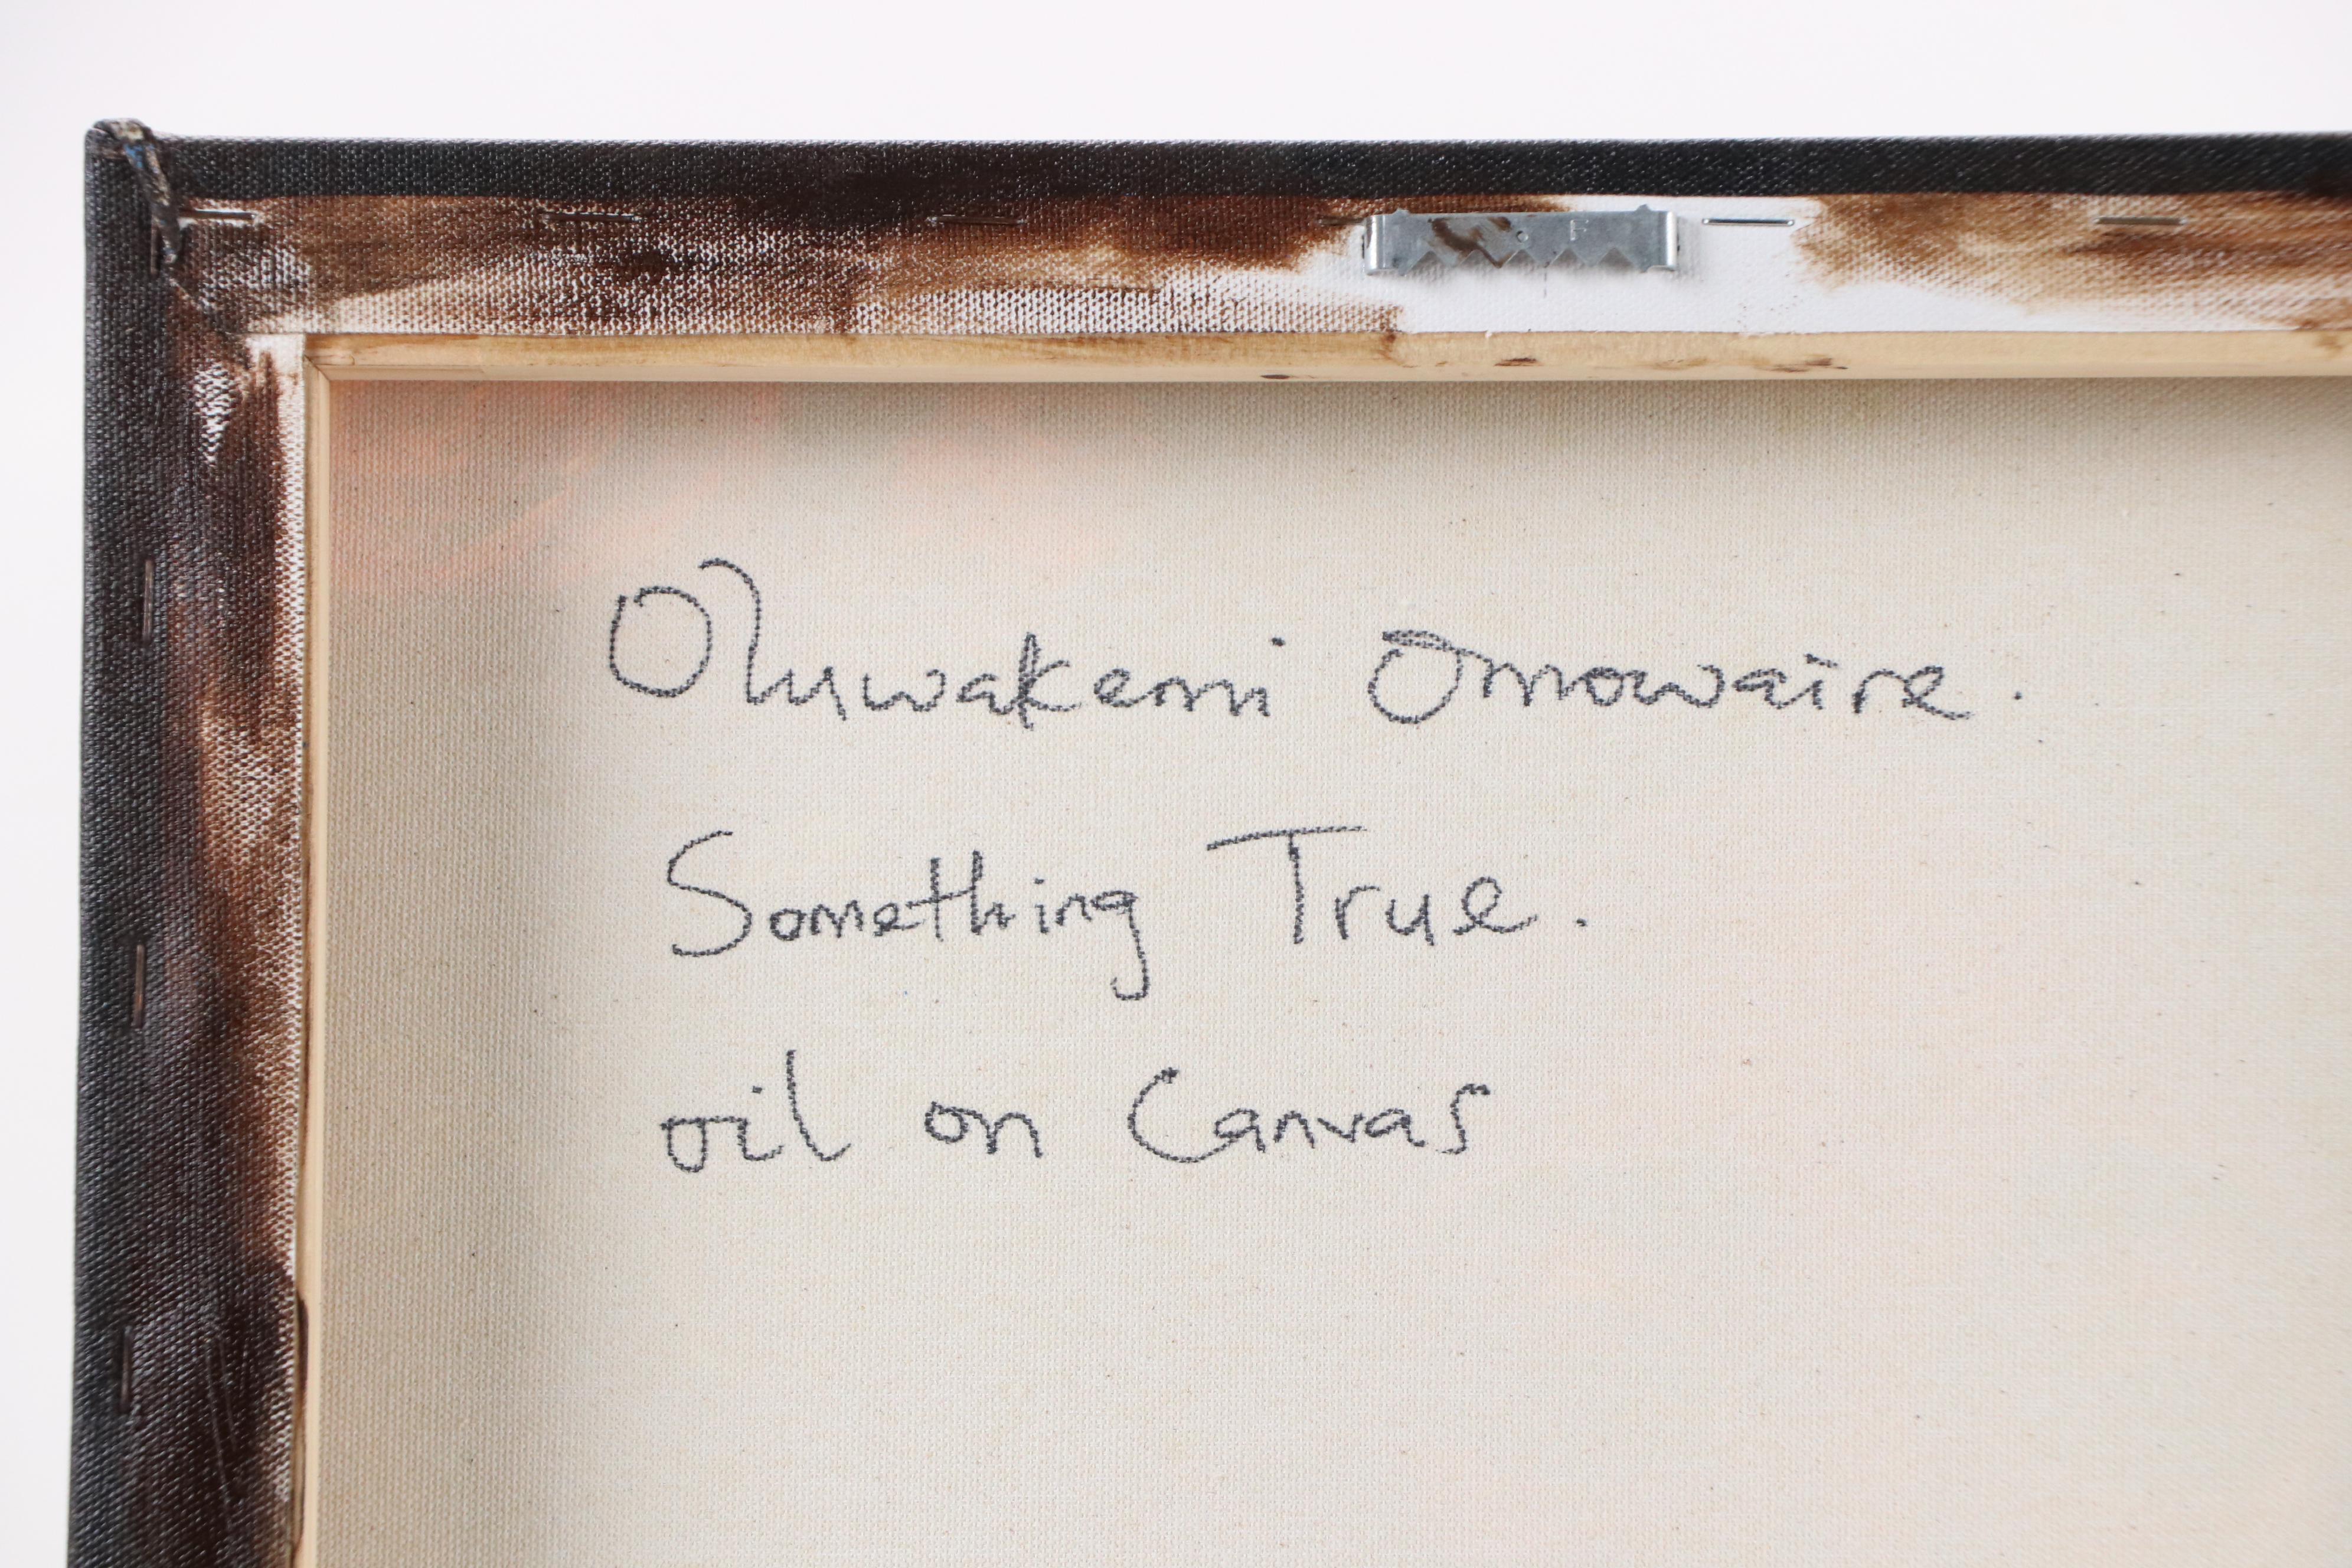 Oluwakemi Omowaire.
Something True.
oil on Canvas